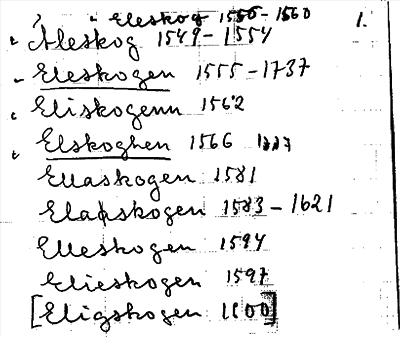 Eleskog 1550-1560 1.
Aleskog 1549-1554
Eleskogen 1555-1737
Eliskogenn 1562
Elskoghen 1566
Ellaskogen 1581
Elapskogen 1583-1621
Elleskogen 1594
Elieskogen 1597
[Eligskogen 1600]